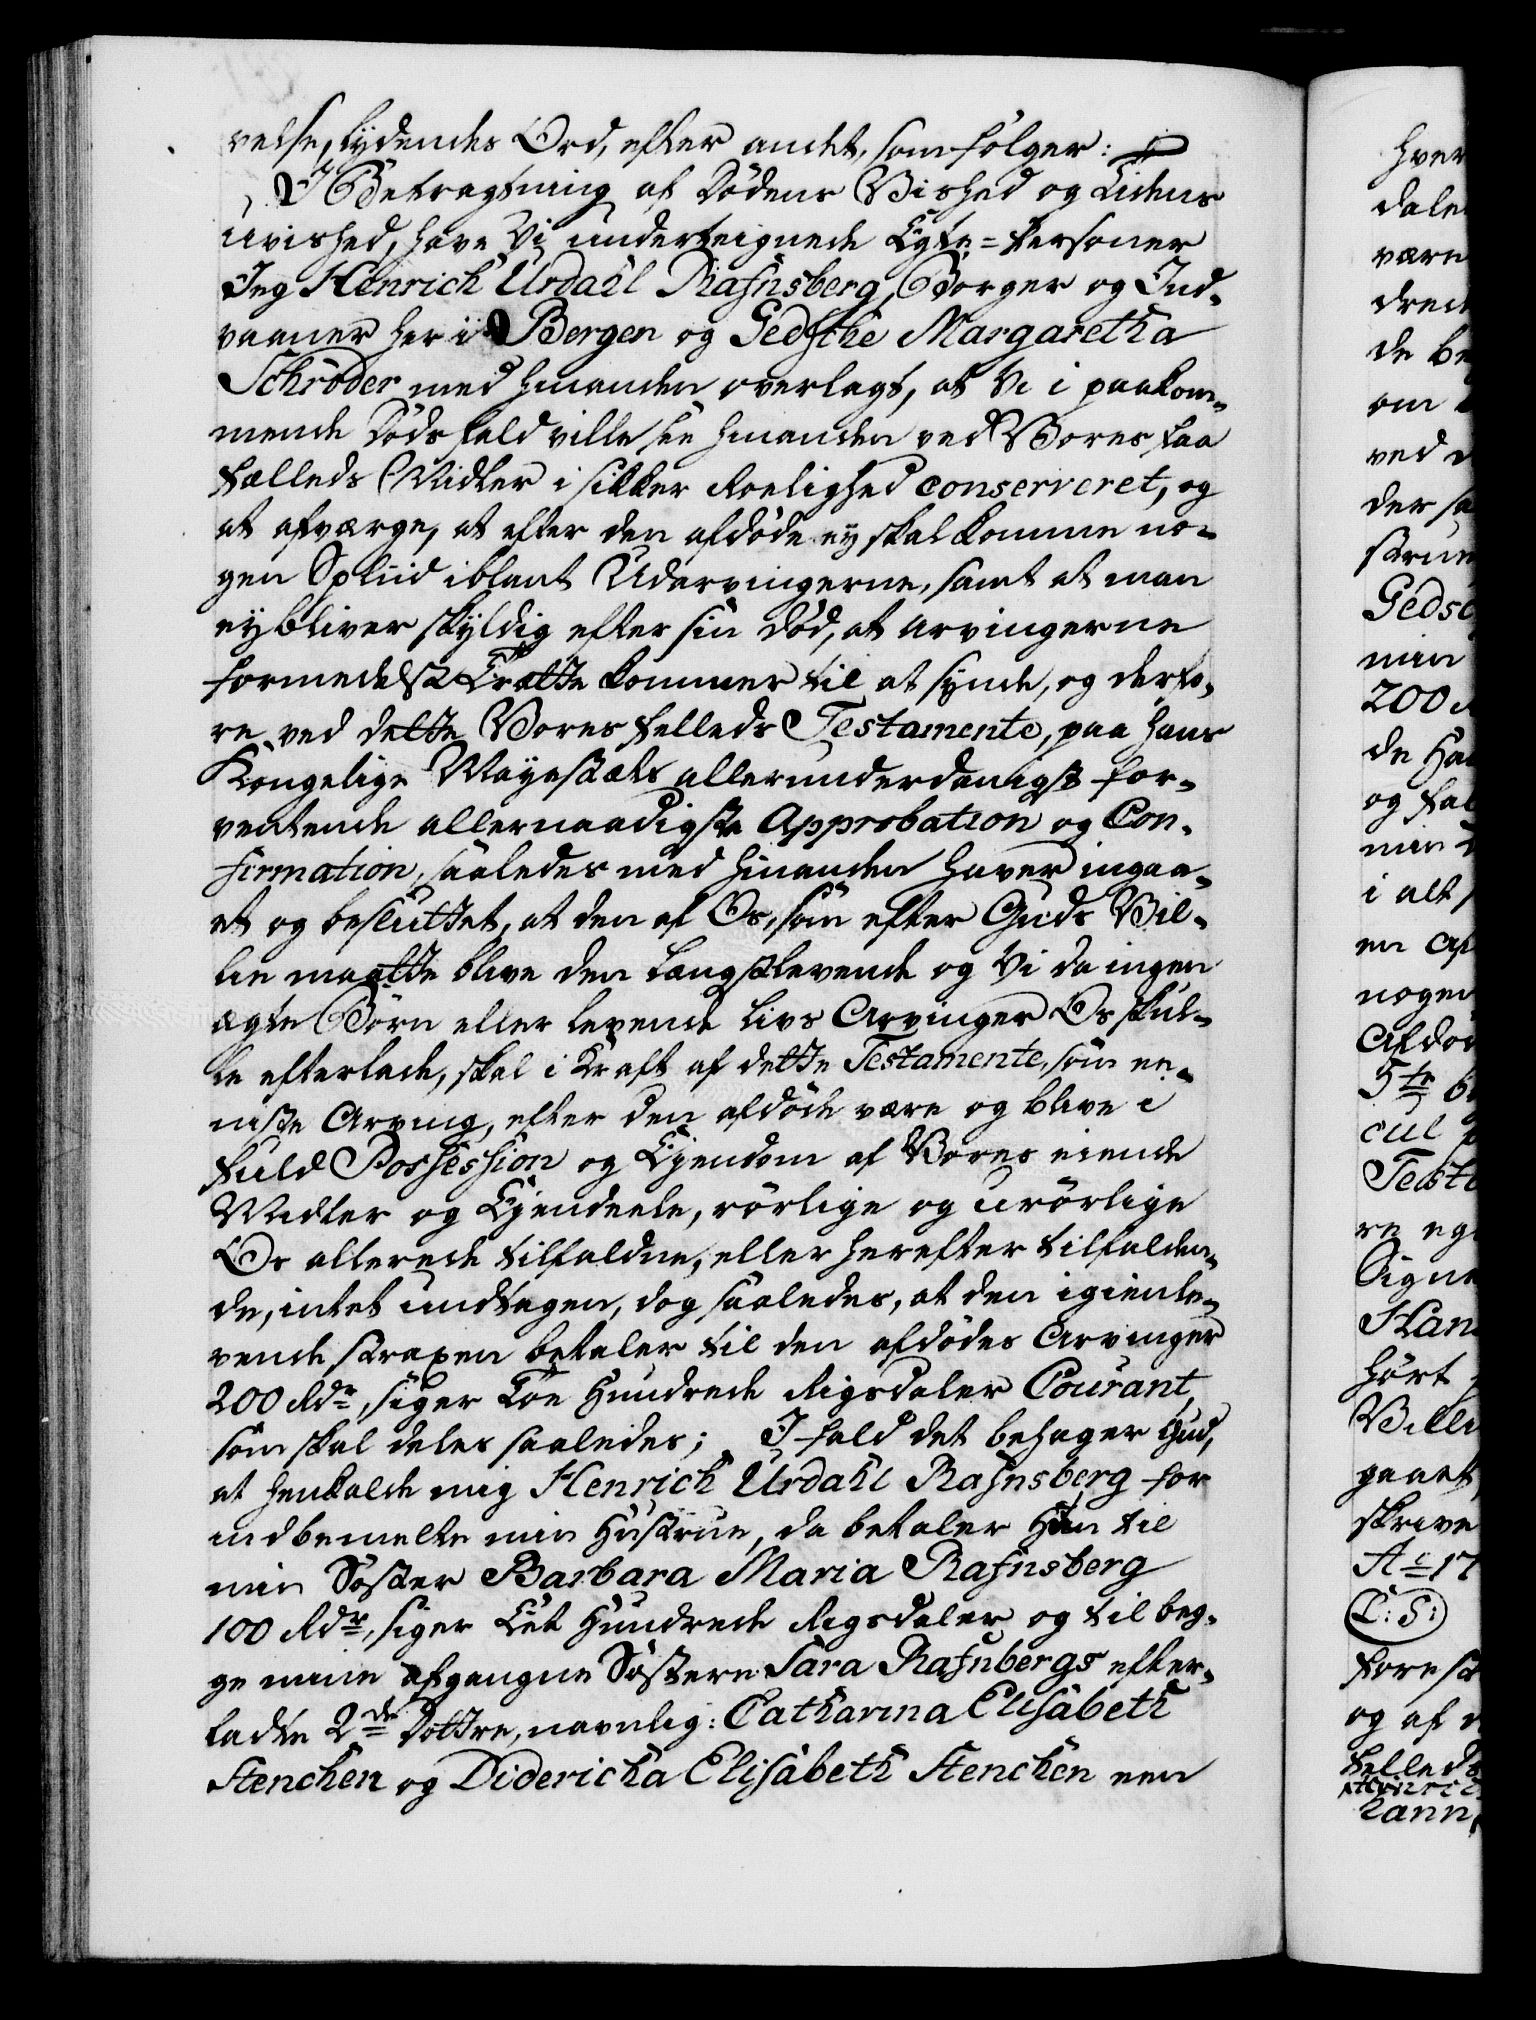 velse, lydendes Ord, efter andet, som følger:
I Betragtning af Dødens Vished og Tidens
uvished, have Vi underteignede Egte-Personer
Jeg Henrich Urdahl Rafnsberg, Borger og Ind-
vaaner her i Bergen og Gedsche Margaretha
Schrøder med hinanden overlagt, at Vi i paakom-
mende Dødsfald ville see hinanden ved Vores faa
Fælleds Midler i sikker Roelighed conserveret, og
at afværge, at efter den afdøde ey skal komme no-
gen Spliid iblant Udarvingerne, samt at man
ey bliver skyldig efter sin død, at arvingerne
formedelst Trætte kommer til at synde, og derfo-
re ved dette Vores Felleds Testamente, paa Hans
Kongelige Mayestæts allerunderdanigst for-
ventende allernaadigste Approbation og Con-
firmation, saaledes med hinanden haver ingaa-
et og besluttet, at den af Os, som efter Guds Vil-
lie maatte blive den Længstlevende og Vi da ingen
ægte Børn eller levende Livs Arvinger Os skul-
le efterlade, skal i Kraft af dette Testamente, som ee-
niste Arving, efter den afdøde være og blive i
fuld Possession og Ejendom af Vores eiende
Midler og Ejendeele, rørlige og urørlige
Os allerede tilfaldne, eller herefter tilfalden-
de, intet undtagen, dog saaledes, at den igienle-
vende straxen betaler til den afdødes Arvinger
200 Rdr, siger Toe Hundrede Rigsdaler Courant,
som skal deles saaledes; I fald det behager Gud,
at henkalde mig Henrich Urdahl Rafnsberg for
indbemelte min Hustrue, da betaler Hun til
min Søster Barbara Maria Rafnsberg
100 Rdr, siger Eet Hundrede Rigsdaler og til beg-
ge min afgangne Søsters Sara Rafnbergs efter-
ladte 2de Døttre, navnlig: Catharina Elisabeth
Stenchen og Didericha Elisabeth Stenchen een
hver
dale
være
dred
de be
om
ved d
der sa
strue
Gedsc
min
200
de Ha
og fal
min
i alt
en af
nogen
Afdø
5te
cul
Testa
re eg
Signe
Han
hørt
Villi
gaaet
skrive
Ao 17
(L: S:)
fore st
og af
Felleds
Henrich
hann